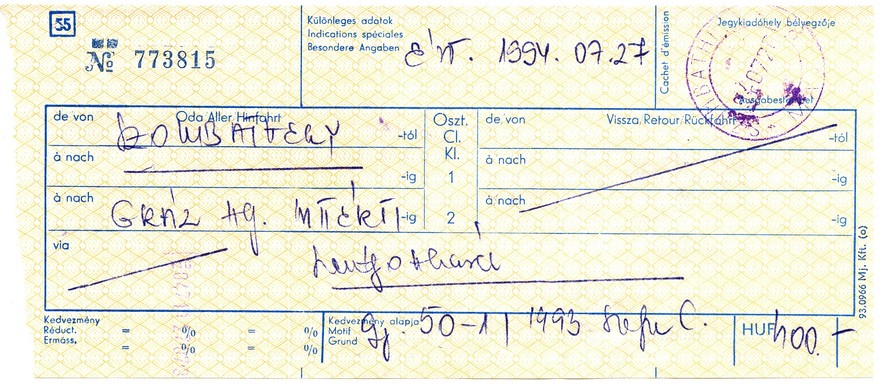 55
№ 773815
Különleges adatok
Indications spéciales
Besondere Angaben
ÉRT. 1994. 07. 27
Cachet d'émission
Jegykiadóhely bélyegzője
Ausgabestempel
de von
Oda Aller Hinfahrt
SZOMBATHELY
-tól
à nach
-ig
à nach
GRÁZ Hg.
-ig
Oszt.
Cl.
Kl.
1
2
de von
Vissza Retour Rückfahrt
-tól
à nach
-ig
à nach
-ig
via
Szentgotthárd
93.0966 Mj. Kft. (o)
Kedvezmény
Réduct. = % = %
Ermäss. = % = %
Kedvezmény alapja
Motif
Grund
50-1 1993. C.
HUF 400.-